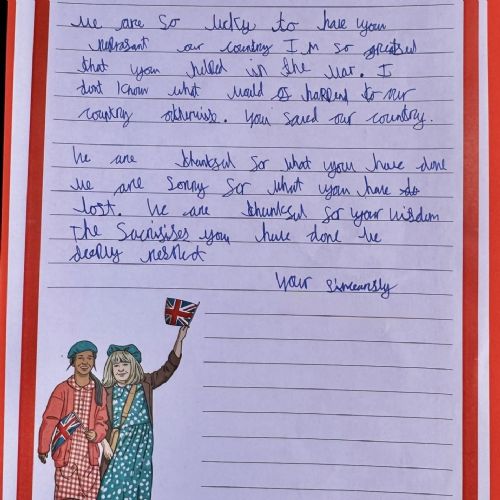 We are so lucky to have you
reprasant our country I'm so
that you helped in the war. I
dont know what would of happend to our
country otherwise. You saved our country.
We are thanksul for what you have done
We are sorry for what you have
lost. We are thanksul for your wisdom
The sacrisises you have done We
deeply respect
Your sincearsly